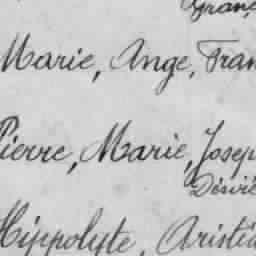 Marie, Ange, Fran
Pierre, Marie, Josep
Hippolyte, Aristi